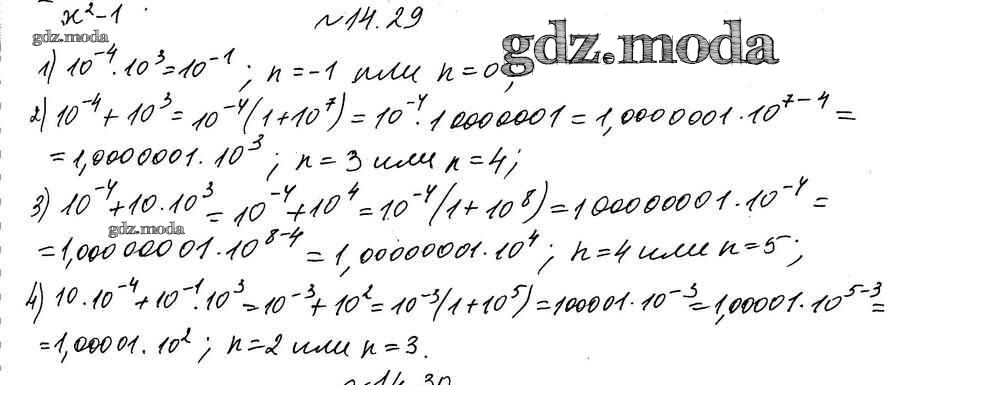 x²-1
№14.29
gdz.moda
gdz.moda
1) 10⁻⁴·10³=10⁻¹; n=-1 или n=0;
2) 10⁻⁴+10³=10⁻⁴(1+10⁷)=10⁻⁴·10000001=1,0000001·10⁷⁻⁴=
=1,0000001·10³; n=3 или n=4;
3) 10⁻⁴+10·10³=10⁻⁴+10⁴=10⁻⁴(1+10⁸)=100000001·10⁻⁴=
gdz.moda
=1,00000001·10⁸⁻⁴=1,00000001·10⁴; n=4 или n=5;
4) 10·10⁻⁴+10⁻¹·10³=10⁻³+10²=10⁻³(1+10⁵)=100001·10⁻³=1,00001·10⁵⁻³=
=1,00001·10²; n=2 или n=3.
№14.30